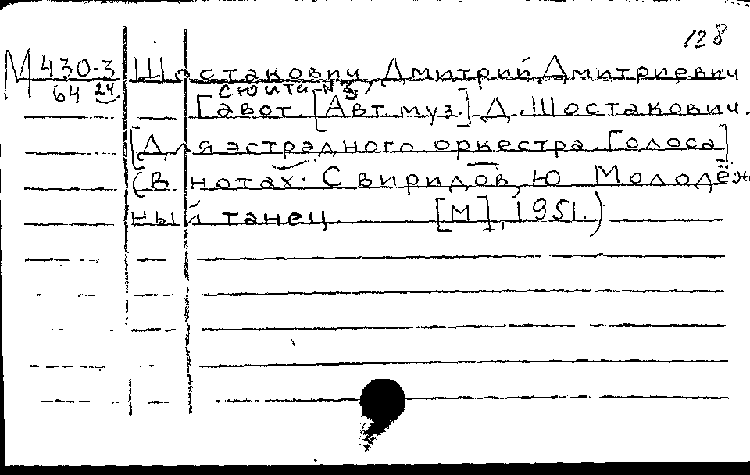 128
М 430-3 Шостакович, Дмитрий Дмитриевич
64 24 Сюита №3,
Гавот. [Авт. муз.] Д. Шостакович.
[Для эстрадного оркестра. Голоса]
(В нотах: Свиридов, Ю. Молодёж
ный танец. [М], 1951.)